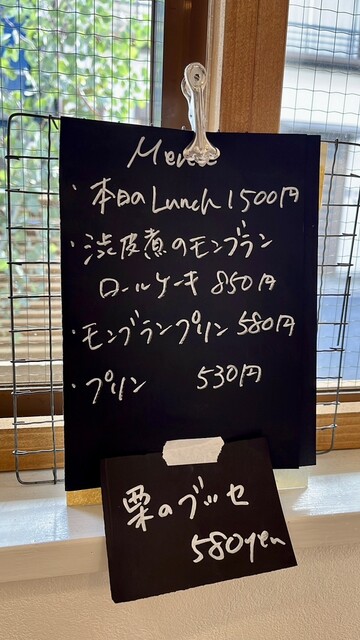 Menu
・本日のLunch 1500円
・渋皮煮のモンブラン
ロールケーキ 850円
・モンブランプリン 580円
・プリン 530円
栗のブッセ
580yen